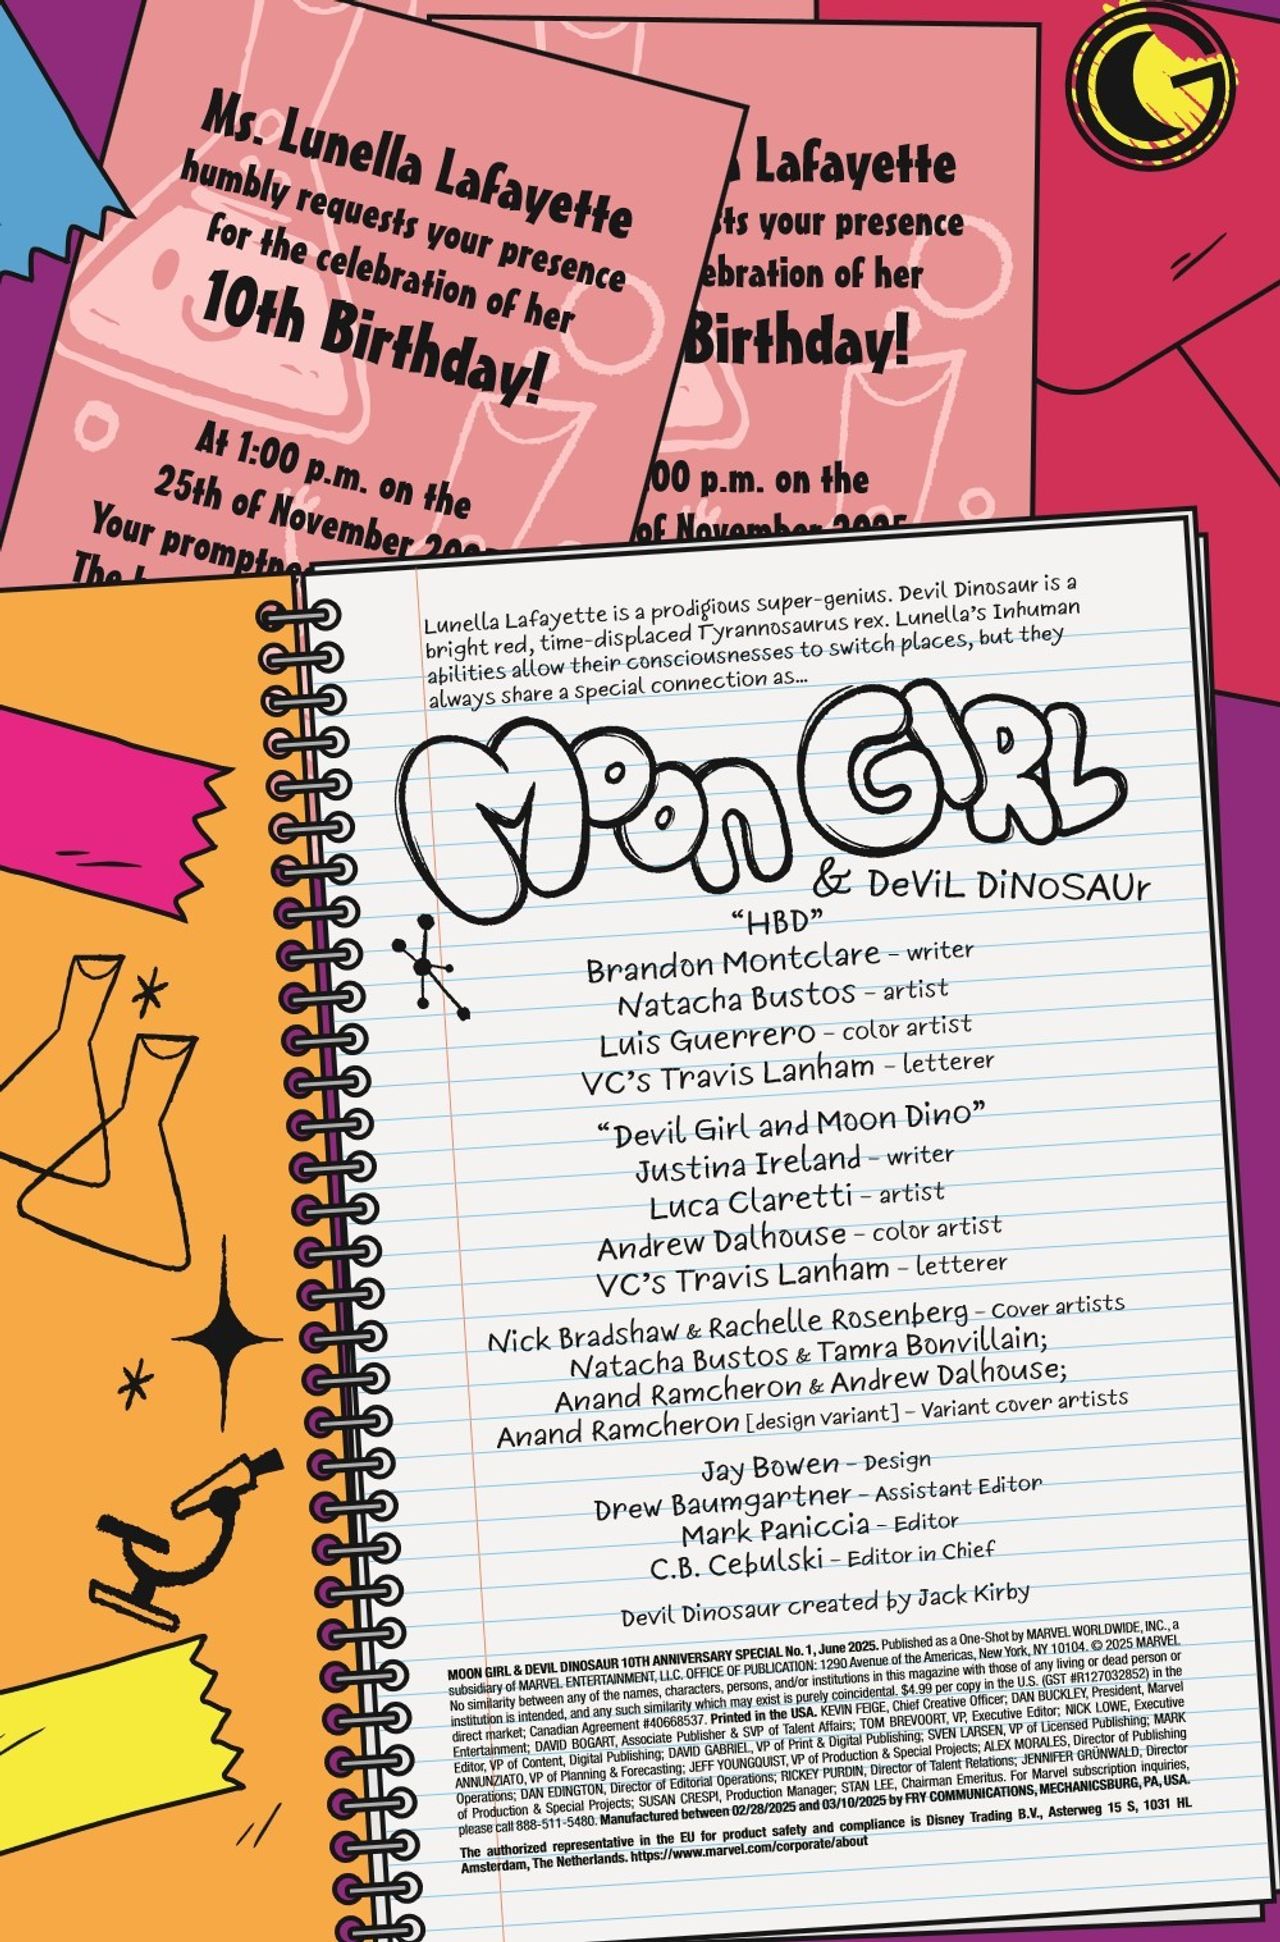 Ms. Lunella Lafayette
humbly requests your presence
for the celebration of her
10th Birthday!
At 1:00 p.m. on the
25th of November
Your
The
Lafayette
your presence
of her
Birthday!
p.m. on the
of November
Lunella Lafayette is a prodigious super-genius. Devil Dinosaur is a
bright red, time-displaced Tyrannosaurus rex. Lunella's Inhuman
abilities allow their consciousnesses to switch places, but they
always share a special connection as...
MOON GIRL
& DeViL DiNoSAUr
“HBD”
Brandon Montclare – writer
Natacha Bustos – artist
Luis Guerrero – color artist
VC's Travis Lanham – letterer
“Devil Girl and Moon Dino”
Justina Ireland – writer
Luca Claretti – artist
Andrew Dalhouse – color artist
VC's Travis Lanham – letterer
Nick Bradshaw & Rachelle Rosenberg – Cover artists
Natacha Bustos & Tamra Bonvillain;
Anand Ramcheron & Andrew Dalhouse;
Anand Ramcheron [design variant] – Variant cover artists
Jay Bowen – Design
Drew Baumgartner – Assistant Editor
Mark Paniccia – Editor
C.B. Cebulski – Editor in Chief
Devil Dinosaur created by Jack Kirby
MOON GIRL & DEVIL DINOSAUR 10TH ANNIVERSARY SPECIAL No. 1, June 2025. Published as a One-Shot by MARVEL WORLDWIDE, INC., a
subsidiary of MARVEL ENTERTAINMENT, LLC. OFFICE OF PUBLICATION: 1290 Avenue of the Americas, New York, NY 10104. © 2025 MARVEL
No similarity between any of the names, characters, persons, and/or institutions in this magazine with those of any living or dead person or
institution is intended, and any such similarity which may exist is purely coincidental. $4.99 per copy in the U.S. (GST #R127032852) in the
direct market; Canadian Agreement #40668537. Printed in the USA. KEVIN FEIGE, Chief Creative Officer; DAN BUCKLEY, President, Marvel
Entertainment; DAVID BOGART, Associate Publisher & SVP of Talent Affairs; TOM BREVOORT, VP, Executive Editor; NICK LOWE, Executive
Editor, VP of Content, Digital Publishing; DAVID GABRIEL, VP of Print & Digital Publishing; SVEN LARSEN, VP of Licensed Publishing; MARK
ANNUNZIATO, VP of Planning & Forecasting; JEFF YOUNGQUIST, VP of Production & Special Projects; ALEX MORALES, Director of Publishing
Operations; DAN EDINGTON, Director of Editorial Operations; RICKEY PURDIN, Director of Talent Relations; JENNIFER GRÜNWALD, Director
of Production & Special Projects; SUSAN CRESPI, Production Manager; STAN LEE, Chairman Emeritus. For Marvel subscription inquiries,
please call 888-511-5480. Manufactured between 02/28/2025 and 03/10/2025 by FRY COMMUNICATIONS, MECHANICSBURG, PA, USA.
The authorized representative in the EU for product safety and compliance is Disney Trading B.V., Asterweg 15 S, 1031 HL
Amsterdam, The Netherlands. https://www.marvel.com/corporate/about